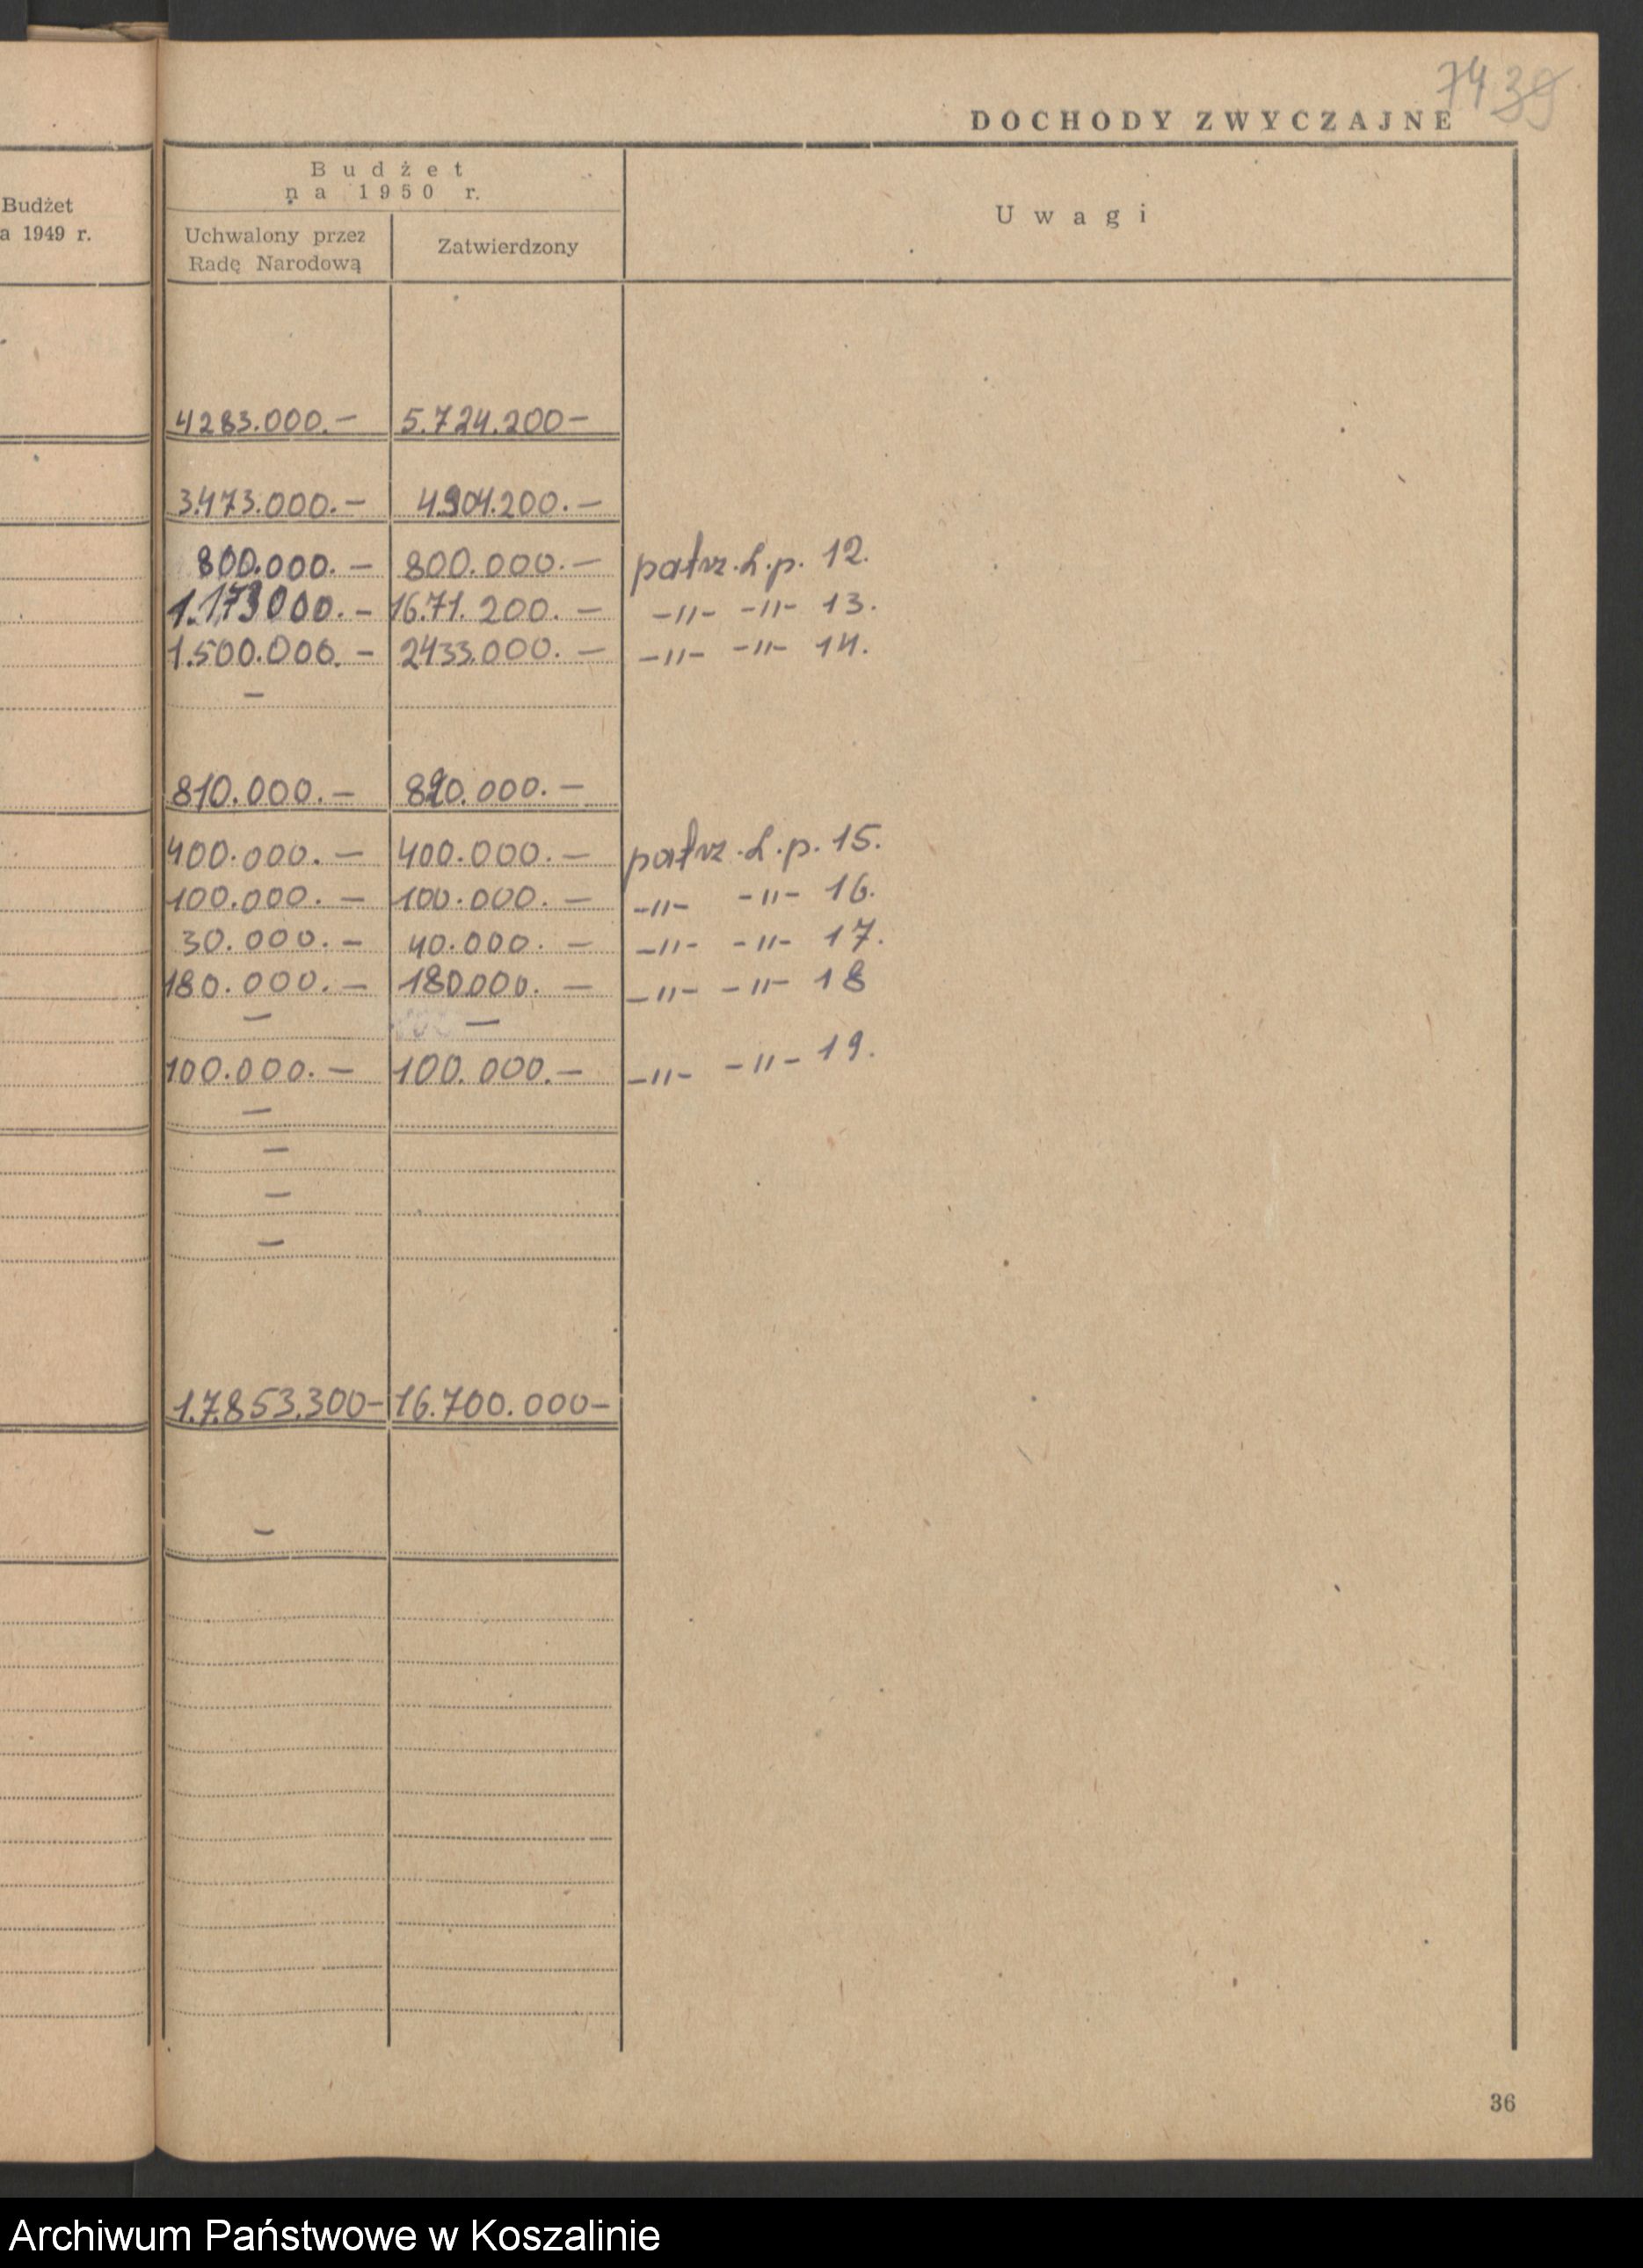 74 39
DOCHODY ZWYCZAJNE
Budżet
a 1949 r.
Budżet
na 1950 r.
Uchwalony przez
Radę Narodową
Zatwierdzony
Uwagi
4283.000.— 5.724.200—
3.473.000.— 4.904.200.—
800.000.— 800.000.— patrz. L.p. 12.
1.173000.— 16.71.200.— —"— —"— 13.
1.500.000.— 2433.000.— —"— —"— 14.
—
810.000.— 820.000.—
400.000.— 400.000.— patrz. L.p. 15.
100.000.— 100.000.— —"— —"— 16.
30.000.— 40.000.— —"— —"— 17.
180.000.— 180000.— —"— —"— 18
— —
100.000.— 100.000.— —"— —"— 19.
—
—
—
—
1.7.853.300— 16.700.000—
—
36
Archiwum Państwowe w Koszalinie